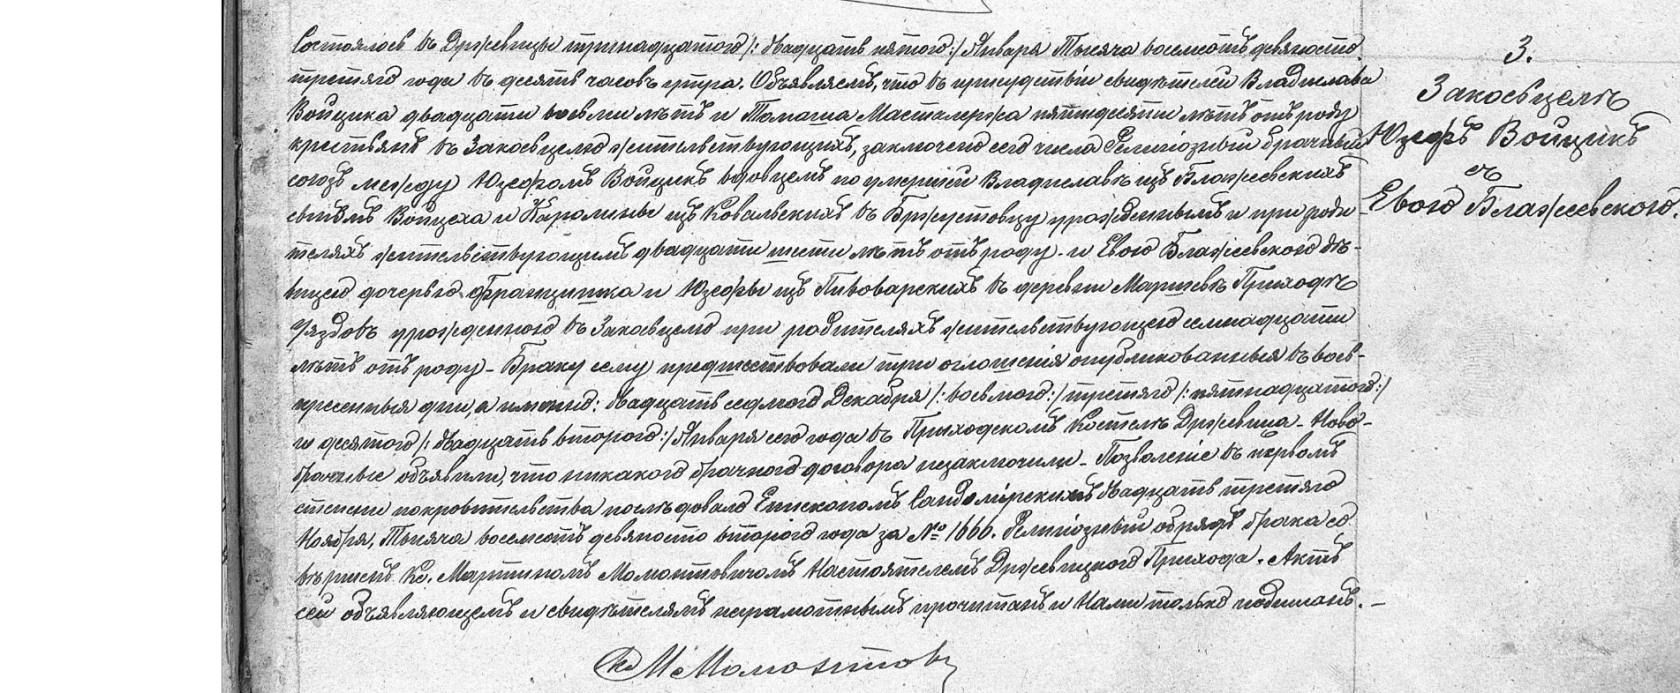 Состоялось въ Држевицы тринадцатого /: двадцать пятого :/ Января Тысяча восемсотъ девяносто
третяго года въ десять часовъ утра. Объявляемъ, что въ присудствіи свидѣтелей Владислава
Войцика двадцати восьми лѣтъ и Томаша Масталержа пятидесяти лѣтъ отъ роду
крестьянъ въ Закосвцелю жительствующихъ, заключено сего числа Религіозный брачный
союзъ между Юзефомъ Войцикъ вдовцемъ по умершей Владиславѣ изъ Блажеевскихъ
сыномъ Войцеха и Каролины изъ Ковальскихъ въ Бржустовцу урожденнымъ и при роди-
теляхъ жительствующимъ двадцати шести лѣтъ отъ роду - и Евою Блажеевскою дѣ-
вицею дочерью Францишка и Юзефы изъ Пивоварскихъ въ деревни Приходѣ
урожденною въ Закосвцелю при родителяхъ жительствующею семнадцати
лѣтъ отъ роду - Браку сему предшествовали три оглошенія опубликованныя въ вос-
кресенныя дни, а именно: двадцать седмого Декабря /: восьмого :/ третяго /: пятнадцатого :/
и десятого /: двадцать второго :/ Января сего года въ Приходскомъ Костелѣ Држевица - Ново-
брачные объявили, что никакого брачного договора незаключили - Позволеніе въ первомъ
степени покровительства послѣдовало Епископомъ Сандомірскимъ двадцать третяго
Ноября, Тысяча восемсотъ девяносто второго года за № 1666. Религіозный обрядъ брака со-
вершенъ Кс. Мартиномъ Момонтовичомъ Настоятелемъ Држевицкого Прихода. Актъ
сей объявляющемъ и свидѣтелямъ неграмотнымъ прочитанъ и Нами только подписанъ. -
3.
Закосвцелѣ
Юзефъ Войцикъ
съ
Евою Блажеевскою.